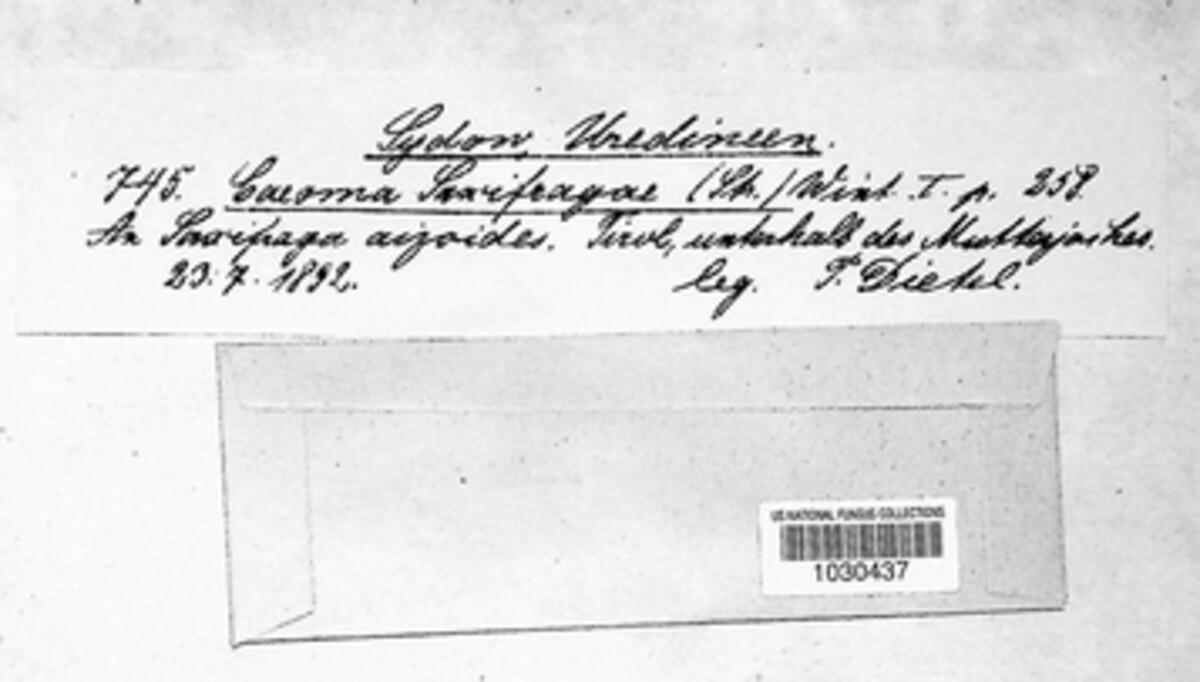 Sydow, Uredineen.
745. Caeoma Saxifragae (Str.) Wint. I. p. 258.
An Saxifraga aizoides. Tirol, unterhalb des Mutterjoches.
23. 7. 1892. leg. P. Dietel.
US NATIONAL FUNGUS COLLECTIONS
1030437